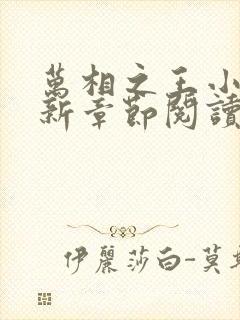 萬相之王小
新章節閱讀
伊麗莎白-莫